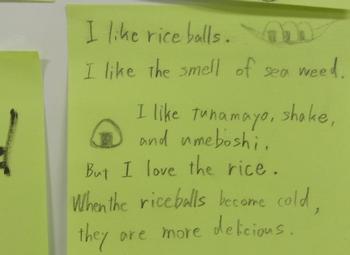 I like rice balls.
I like the smell of sea weed.
I like tunamayo, shake,
and umeboshi.
But I love the rice.
When the riceballs become cold,
they are more delicious.